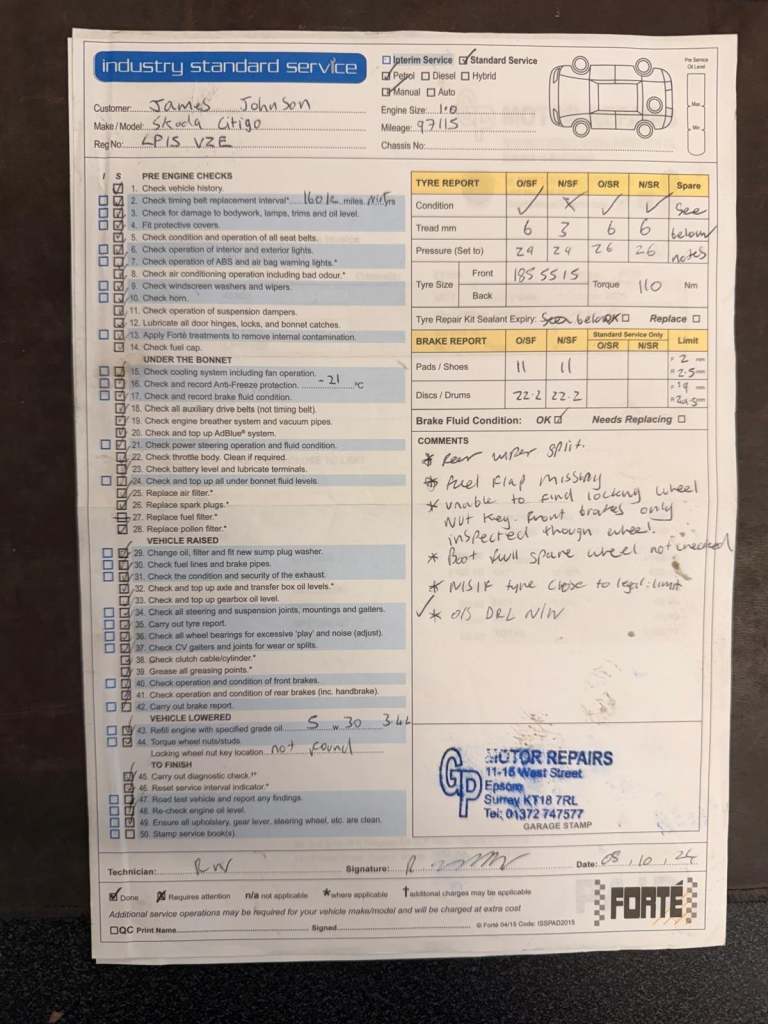 industry standard service
Interim Service Standard Service
Petrol Diesel Hybrid
Manual Auto
Pre Service Oil Level
Max
Min
Customer: James Johnson
Engine Size: 1.0
Make / Model: Skoda Citigo
Mileage: 97115
Reg No: LP15 VZE
Chassis No:
I S PRE ENGINE CHECKS
1. Check vehicle history.
2. Check timing belt replacement interval* 160k miles yrs
3. Check for damage to bodywork, lamps, trims and oil level.
4. Fit protective covers.
5. Check condition and operation of all seat belts.
6. Check operation of interior and exterior lights.
7. Check operation of ABS and air bag warning lights.*
8. Check air conditioning operation including bad odour.*
9. Check windscreen washers and wipers.
10. Check horn.
11. Check operation of suspension dampers.
12. Lubricate all door hinges, locks, and bonnet catches.
13. Apply Forté treatments to remove internal contamination.
14. Check fuel cap.
UNDER THE BONNET
15. Check cooling system including fan operation.
16. Check and record Anti-Freeze protection. -21 °C
17. Check and record brake fluid condition.
18. Check all auxiliary drive belts (not timing belt).
19. Check engine breather system and vacuum pipes.
20. Check and top up AdBlue® system.
21. Check power steering operation and fluid condition.
22. Check throttle body. Clean if required.
23. Check battery level and lubricate terminals.
24. Check and top up all under bonnet fluid levels.
25. Replace air filter.*
26. Replace spark plugs.*
27. Replace fuel filter.*
28. Replace pollen filter.*
VEHICLE RAISED
29. Change oil, filter and fit new sump plug washer.
30. Check fuel lines and brake pipes.
31. Check the condition and security of the exhaust.
32. Check and top up axle and transfer box oil levels.*
33. Check and top up gearbox oil level.
34. Check all steering and suspension joints, mountings and gaiters.
35. Carry out tyre report.
36. Check all wheel bearings for excessive 'play' and noise (adjust).
37. Check CV gaiters and joints for wear or splits.
38. Check clutch cable/cylinder.*
39. Grease all greasing points.*
40. Check operation and condition of front brakes.
41. Check operation and condition of rear brakes (inc. handbrake).
42. Carry out brake report.
VEHICLE LOWERED
43. Refill engine with specified grade oil. 5 w 30 3.4L
44. Torque wheel nuts/studs.
Locking wheel nut key location not found
TO FINISH
45. Carry out diagnostic check.†*
46. Reset service interval indicator.*
47. Road test vehicle and report any findings.
48. Re-check engine oil level.
49. Ensure all upholstery, gear lever, steering wheel, etc. are clean.
50. Stamp service book(s).
TYRE REPORT O/SF N/SF O/SR N/SR Spare
Condition See
Tread mm 6 3 6 6 below
Pressure (Set to) 29 29 26 26 notes
Tyre Size Front 185 55 15 Torque 110 Nm
Back
Tyre Repair Kit Sealant Expiry: below OK Replace
BRAKE REPORT O/SF N/SF Standard Service Only O/SR N/SR Limit
Pads / Shoes 11 11 F 2 mm R 2.5 mm
Discs / Drums 22.2 22.2 F 19 mm
Brake Fluid Condition: OK Needs Replacing
COMMENTS
* Rear wiper split.
* Fuel flap missing
* unable to find locking wheel
nut key. Front brakes only
inspected though wheel.
* Boot full spare wheel not checked
* N/S/F tyre close to legal limit
* O/S DRL N/W
GP MOTOR REPAIRS
11-15 West Street
Epsom
Surrey KT18 7RL
Tel: 01372 747577
GARAGE STAMP
Technician: RW Signature: Date: 08.10.24
Done Requires attention n/a not applicable *where applicable † additional charges may be applicable
Additional service operations may be required for your vehicle make/model and will be charged at extra cost
QC Print Name Signed © Forté 04/15 Code: ISSPAD2015
FORTÉ